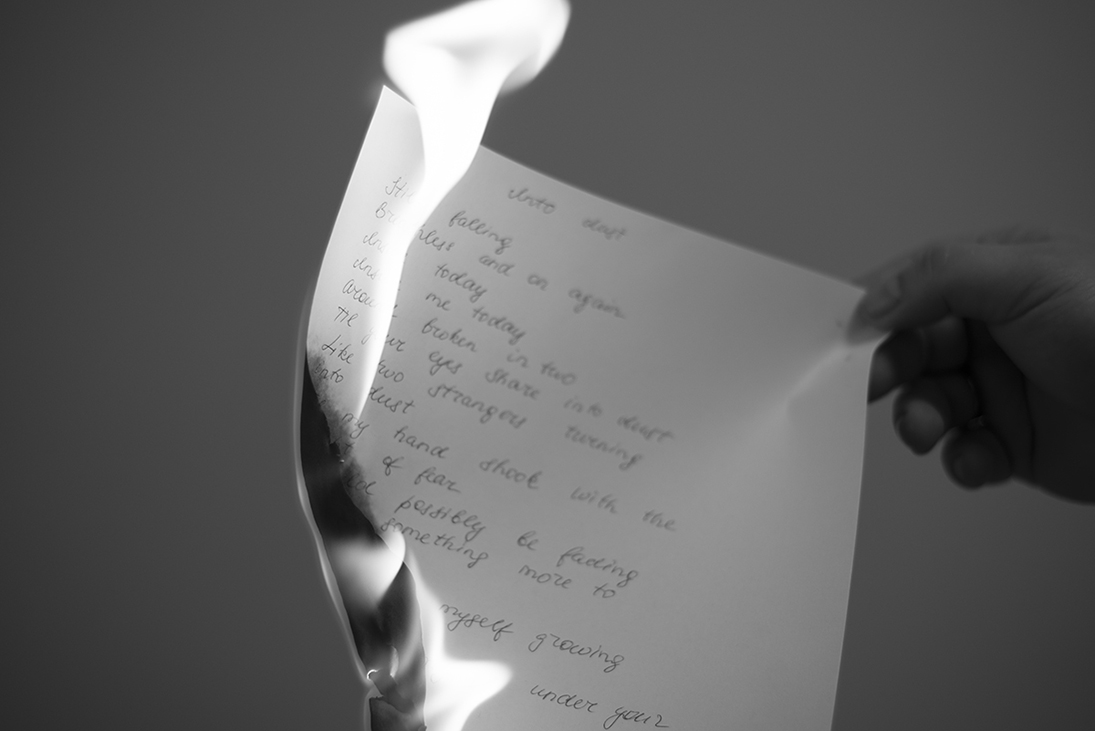 Into dust
falling
and on again
today
me today
broken in two
eyes share into dust
Like two strangers turning
dust
my hand shook with the
of fear
possibly be fading
something more to
myself growing
under your